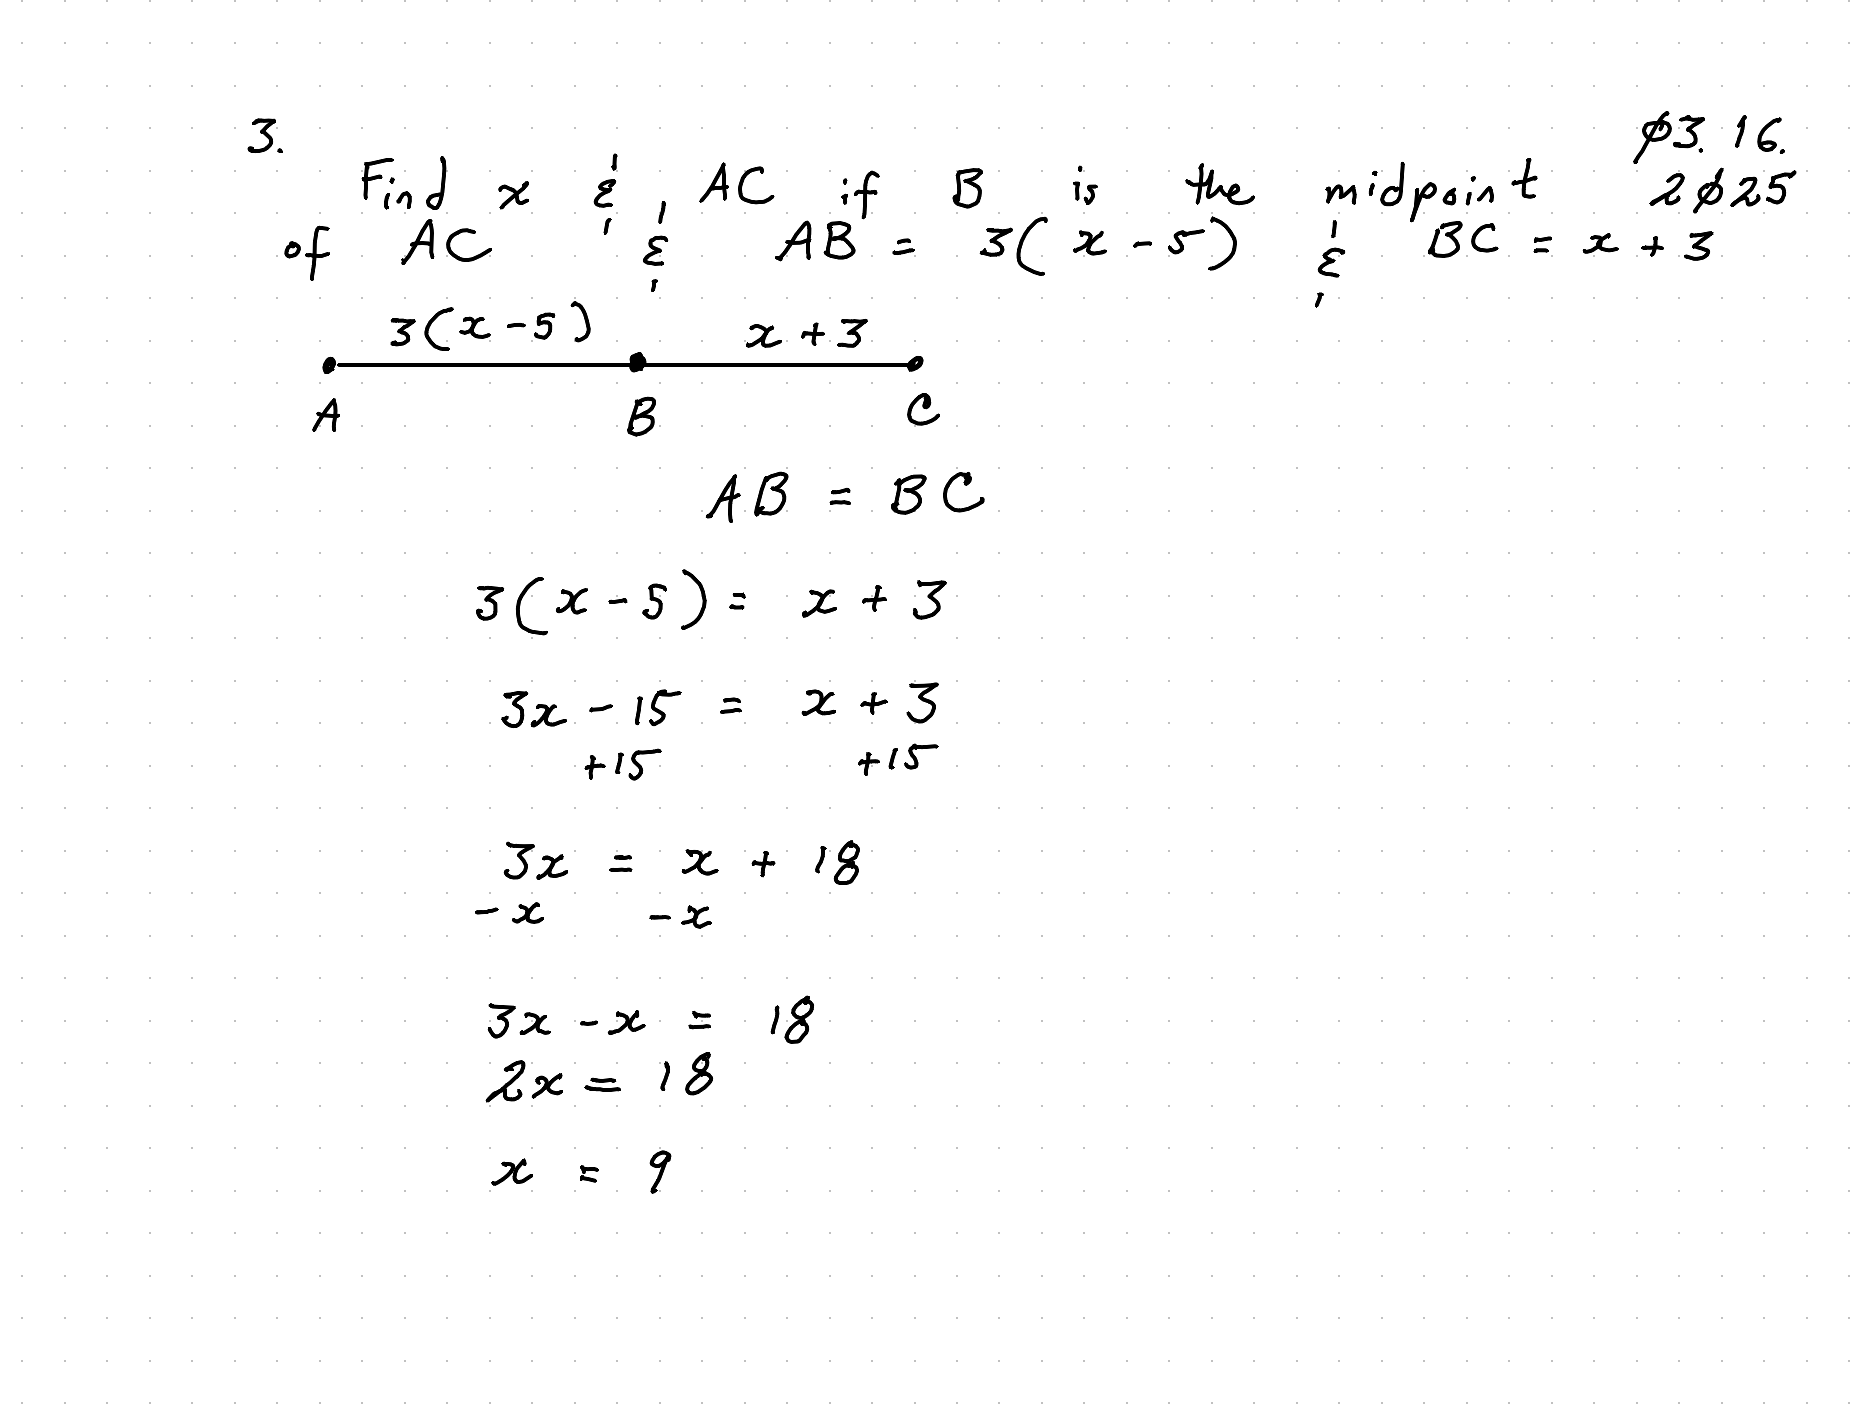 3.
ø3.16.
Find x & AC if B is the midpoint
2ø25
of AC & AB = 3(x-5) & BC = x+3
3(x-5) x+3
A B C
AB = BC
3(x-5) = x+3
3x-15 = x+3
+15 +15
3x = x+18
-x -x
3x-x = 18
2x = 18
x = 9